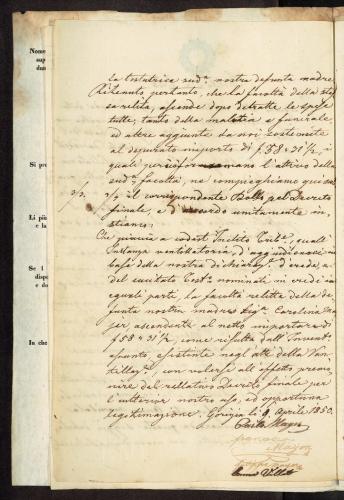 Nome
sup
dun
la testatrice sud.a nostra defunta madre
Ritenuto pertanto, che la facoltà della stes
sa relita, ascende dopo detratte le spese
tutte, tanto della malattia e funerale
ed altre aggiunte da noi sostenute
al depurato importo di f 58 x 31 1/2, i
quali perciò formano l'attivo della
sud.a facoltà, ne compieghiamo qui
2/2. il corrispondente Bollo pel Decreto
finale, e d'accordo unitamente in-
stiamo:
Che piaccia a codest' Inclito Trib.e, quall'
Instanza ventilatoria, d'aggiudicarci in
base della nostra dichiaraz.e d'erede, e
del succitato Test.o nominati in eredi in
eguali parti, la facoltà relitta della de-
funta nostra madre Sig.a Carolina Ma-
yer, ascendente al netto importare di
f 58 x 31 1/2, come risulta dall' Invent.o
assunto, esistente negli atti della Ven-
tillaz.e, con volerci all' effetto premu-
nire del rellativo Decreto finale per
l'ulteriore nostro uso, ed opportuna
legittimazione. Gorizia li Aprile 1850.
Carlo Mayer
Si pre
Li più
e la
Se i
dispo
e do
In che